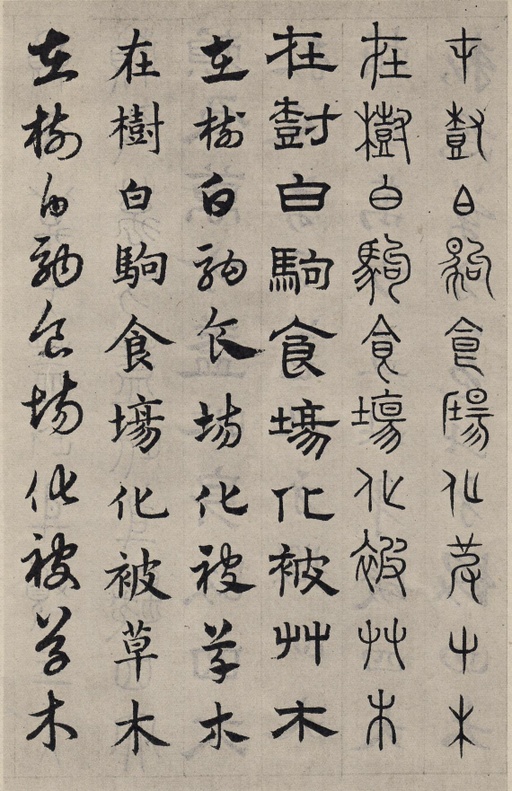 在樹白駒食場化被草木
在樹白駒食場化被艸木
在尌白駒食塲化被艸木
在樹白駒食場化被草木
在樹白駒食塲化被草木
在樹白駒食場化被草木